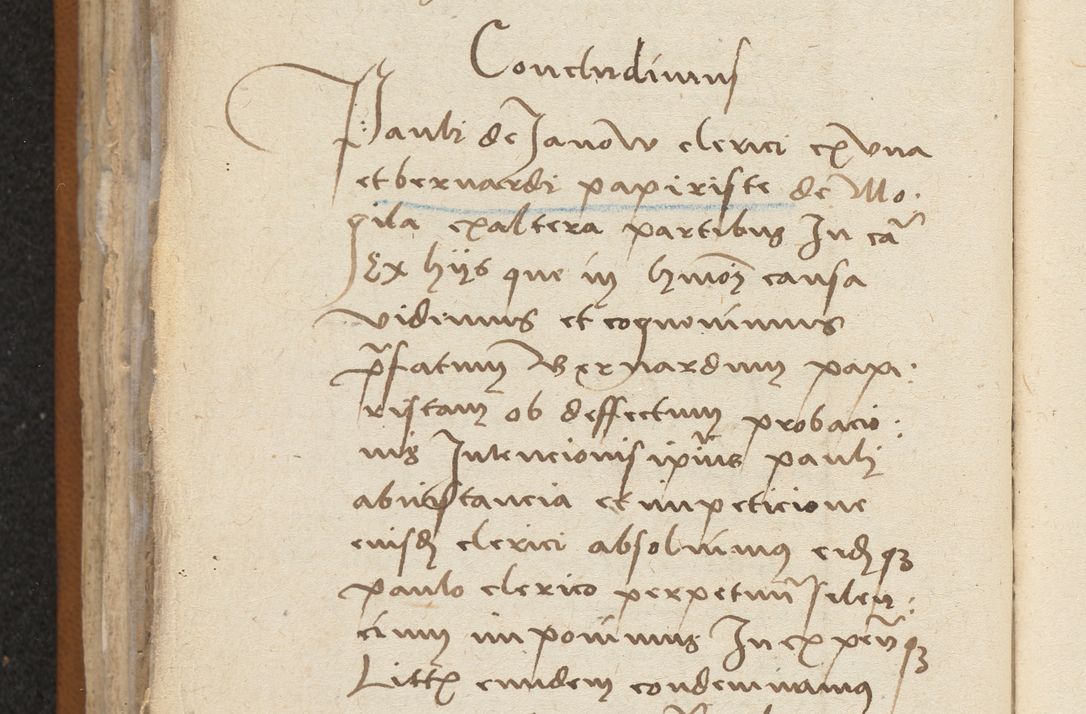 Concludimus
Pauli de Janow clerici ex vna
et bernardi papiriste de Mo.
gila ex altera partibus In cā
Ex hijs que in hmōi causa
vidimus et cognouimus
p̄fatum Bernardum papi:
ristam ob deffectum probacio:
nis Intencionis ipsius pauli
ab instancia et impeticione
eiusdē clerici absoluimus eidēqȝ
paulo clerico perpetuū silen:
cium imponimus In expen̄qȝ
Litis eundem condemnamus